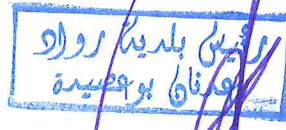 رئيس بلدية رواد
عدنان بوعصيدة